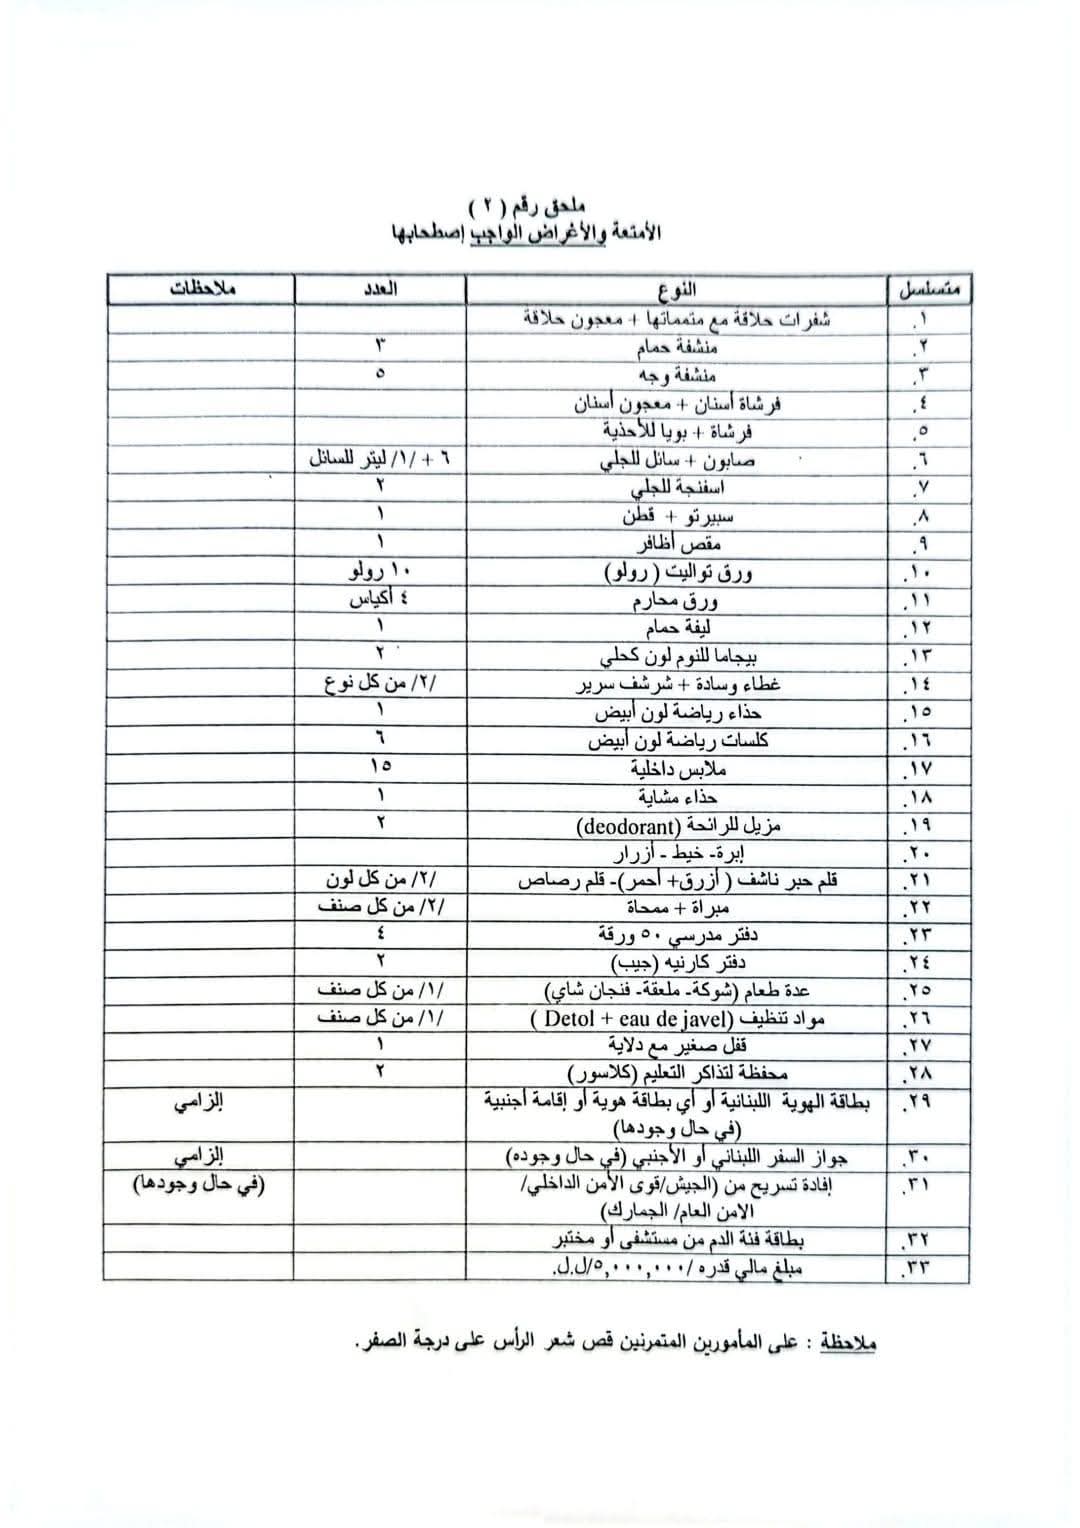 ملحق رقم ( ٢ )
الأمتعة والأغراض الواجب إصطحابها
متسلسل النوع العدد ملاحظات
١. شفرات حلاقة مع متمماتها + معجون حلاقة
٢. منشفة حمام ٣
٣. منشفة وجه ٥
٤. فرشاة أسنان + معجون أسنان
٥. فرشاة + بويا للأحذية
٦. صابون + سائل للجلي ٦ + /١/ ليتر للسائل
٧. اسفنجة للجلي ٢
٨. سبيرتو + قطن ١
٩. مقص أظافر ١
١٠. ورق تواليت ( رولو) ١٠ رولو
١١. ورق محارم ٤ أكياس
١٢. ليفة حمام ١
١٣. بيجاما للنوم لون كحلي ٢
١٤. غطاء وسادة + شرشف سرير /٢/ من كل نوع
١٥. حذاء رياضة لون أبيض ١
١٦. كلسات رياضة لون أبيض ٦
١٧. ملابس داخلية ١٥
١٨. حذاء مشاية ١
١٩. مزيل للرائحة (deodorant) ٢
٢٠. إبرة- خيط - أزرار
٢١. قلم حبر ناشف ( أزرق+ أحمر)- قلم رصاص /٢/ من كل لون
٢٢. مبراة + ممحاة /٢/ من كل صنف
٢٣. دفتر مدرسي ٥٠ ورقة ٤
٢٤. دفتر كارنيه (جيب) ٢
٢٥. عدة طعام (شوكة- ملعقة- فنجان شاي) /١/ من كل صنف
٢٦. مواد تنظيف (Detol + eau de javel ) /١/ من كل صنف
٢٧. قفل صغير مع دلاية ١
٢٨. محفظة لتذاكر التعليم (كلاسور) ٢
٢٩. بطاقة الهوية اللبنانية أو أي بطاقة هوية أو إقامة أجنبية إلزامي
(في حال وجودها)
٣٠. جواز السفر اللبناني أو الأجنبي (في حال وجوده) إلزامي
٣١. إفادة تسريح من (الجيش/قوى الأمن الداخلي/ (في حال وجودها)
الامن العام/ الجمارك)
٣٢. بطاقة فئة الدم من مستشفى أو مختبر
٣٣. مبلغ مالي قدره /٥,٠٠٠,٠٠٠/ل.ل.
ملاحظة : على المأمورين المتمرنين قص شعر الرأس على درجة الصفر.